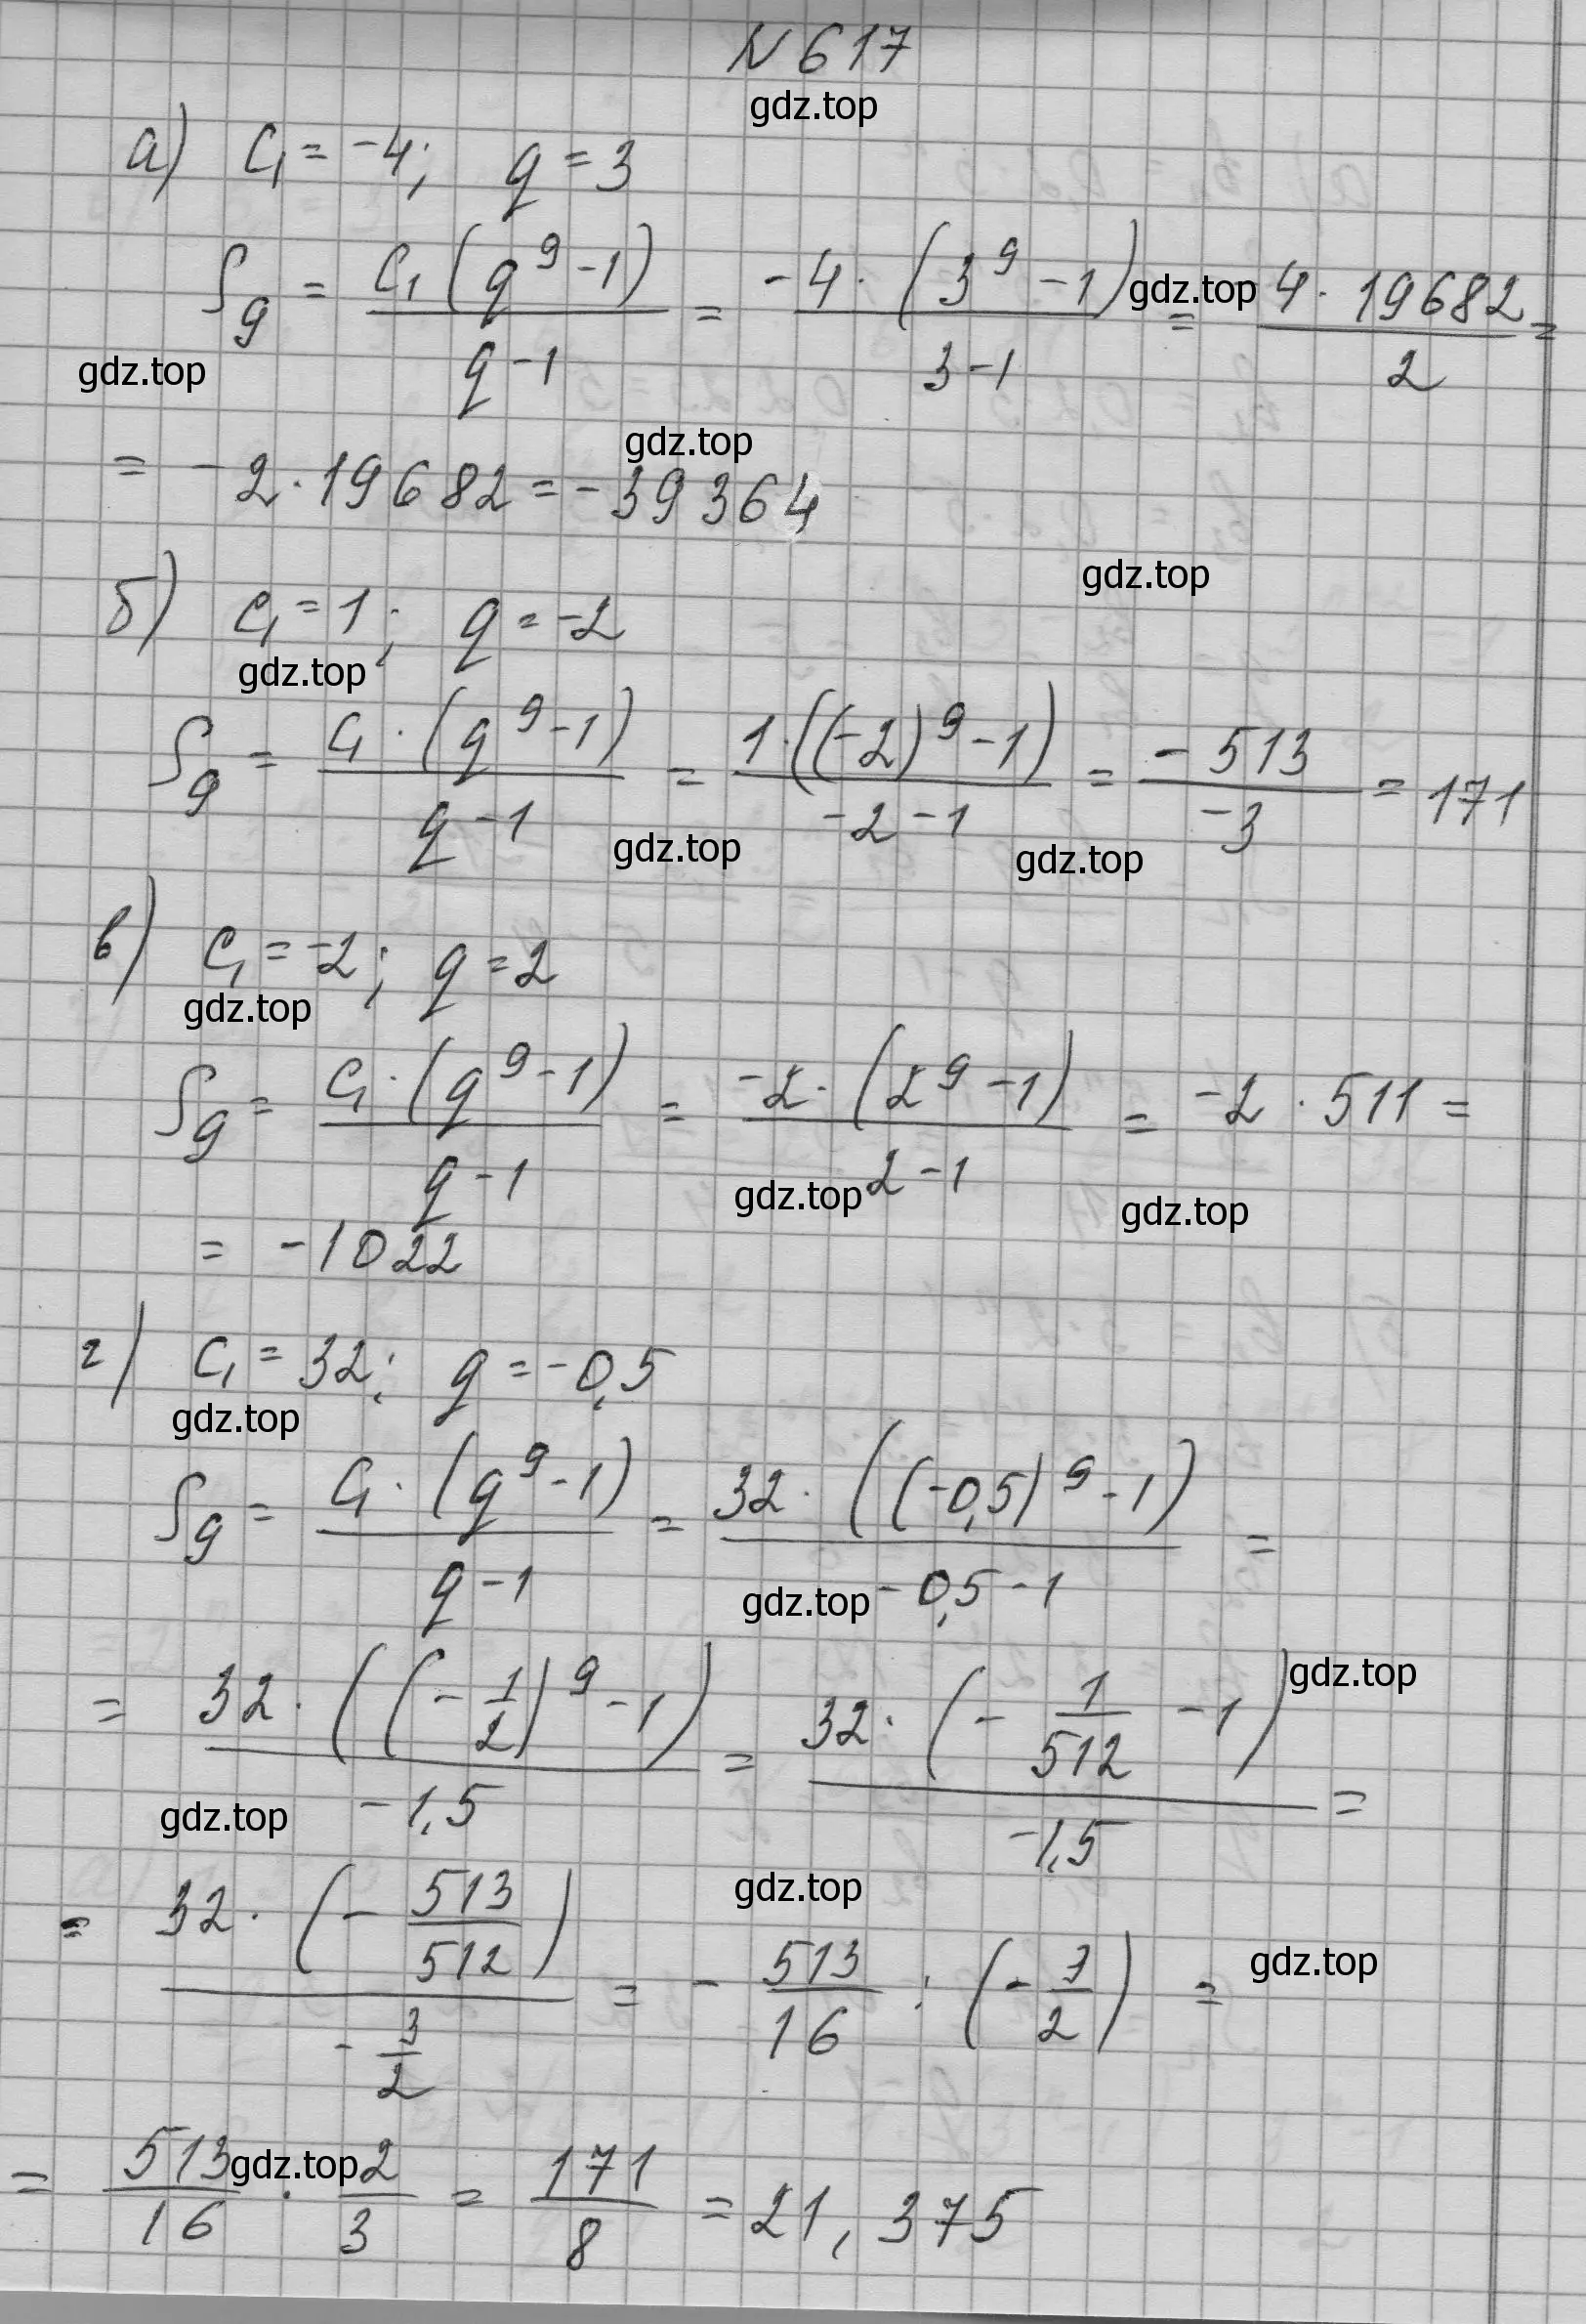 N 617
gdz.top
а) C₁ = -4; q = 3
S₉ = C₁(q⁹-1)/(q-1) = -4·(3⁹-1)/(3-1) gdz.top = 4·19682/2 =
gdz.top
gdz.top
= -2·19682 = -39364
gdz.top
б) C₁ = 1; q = -2
gdz.top
S₉ = C₁·(q⁹-1)/(q-1) = 1·((-2)⁹-1)/(-2-1) = -513/-3 = 171
gdz.top gdz.top
в) C₁ = -2; q = 2
gdz.top
S₉ = C₁·(q⁹-1)/(q-1) = -2·(2⁹-1)/(2-1) = -2·511 =
gdz.top gdz.top
= -1022
г) C₁ = 32; q = -0,5
gdz.top
S₉ = C₁·(q⁹-1)/(q-1) = 32·((-0,5)⁹-1)/(-0,5-1) =
gdz.top
gdz.top
= 32·((-1/2)⁹-1)/(-1,5) = 32·(-1/512 -1)/(-1,5) =
gdz.top
gdz.top
= 32·(-513/512)/(-3/2) = -513/16 : (-3/2) =
gdz.top
= 513/16 gdz.top · 2/3 = 171/8 = 21,375